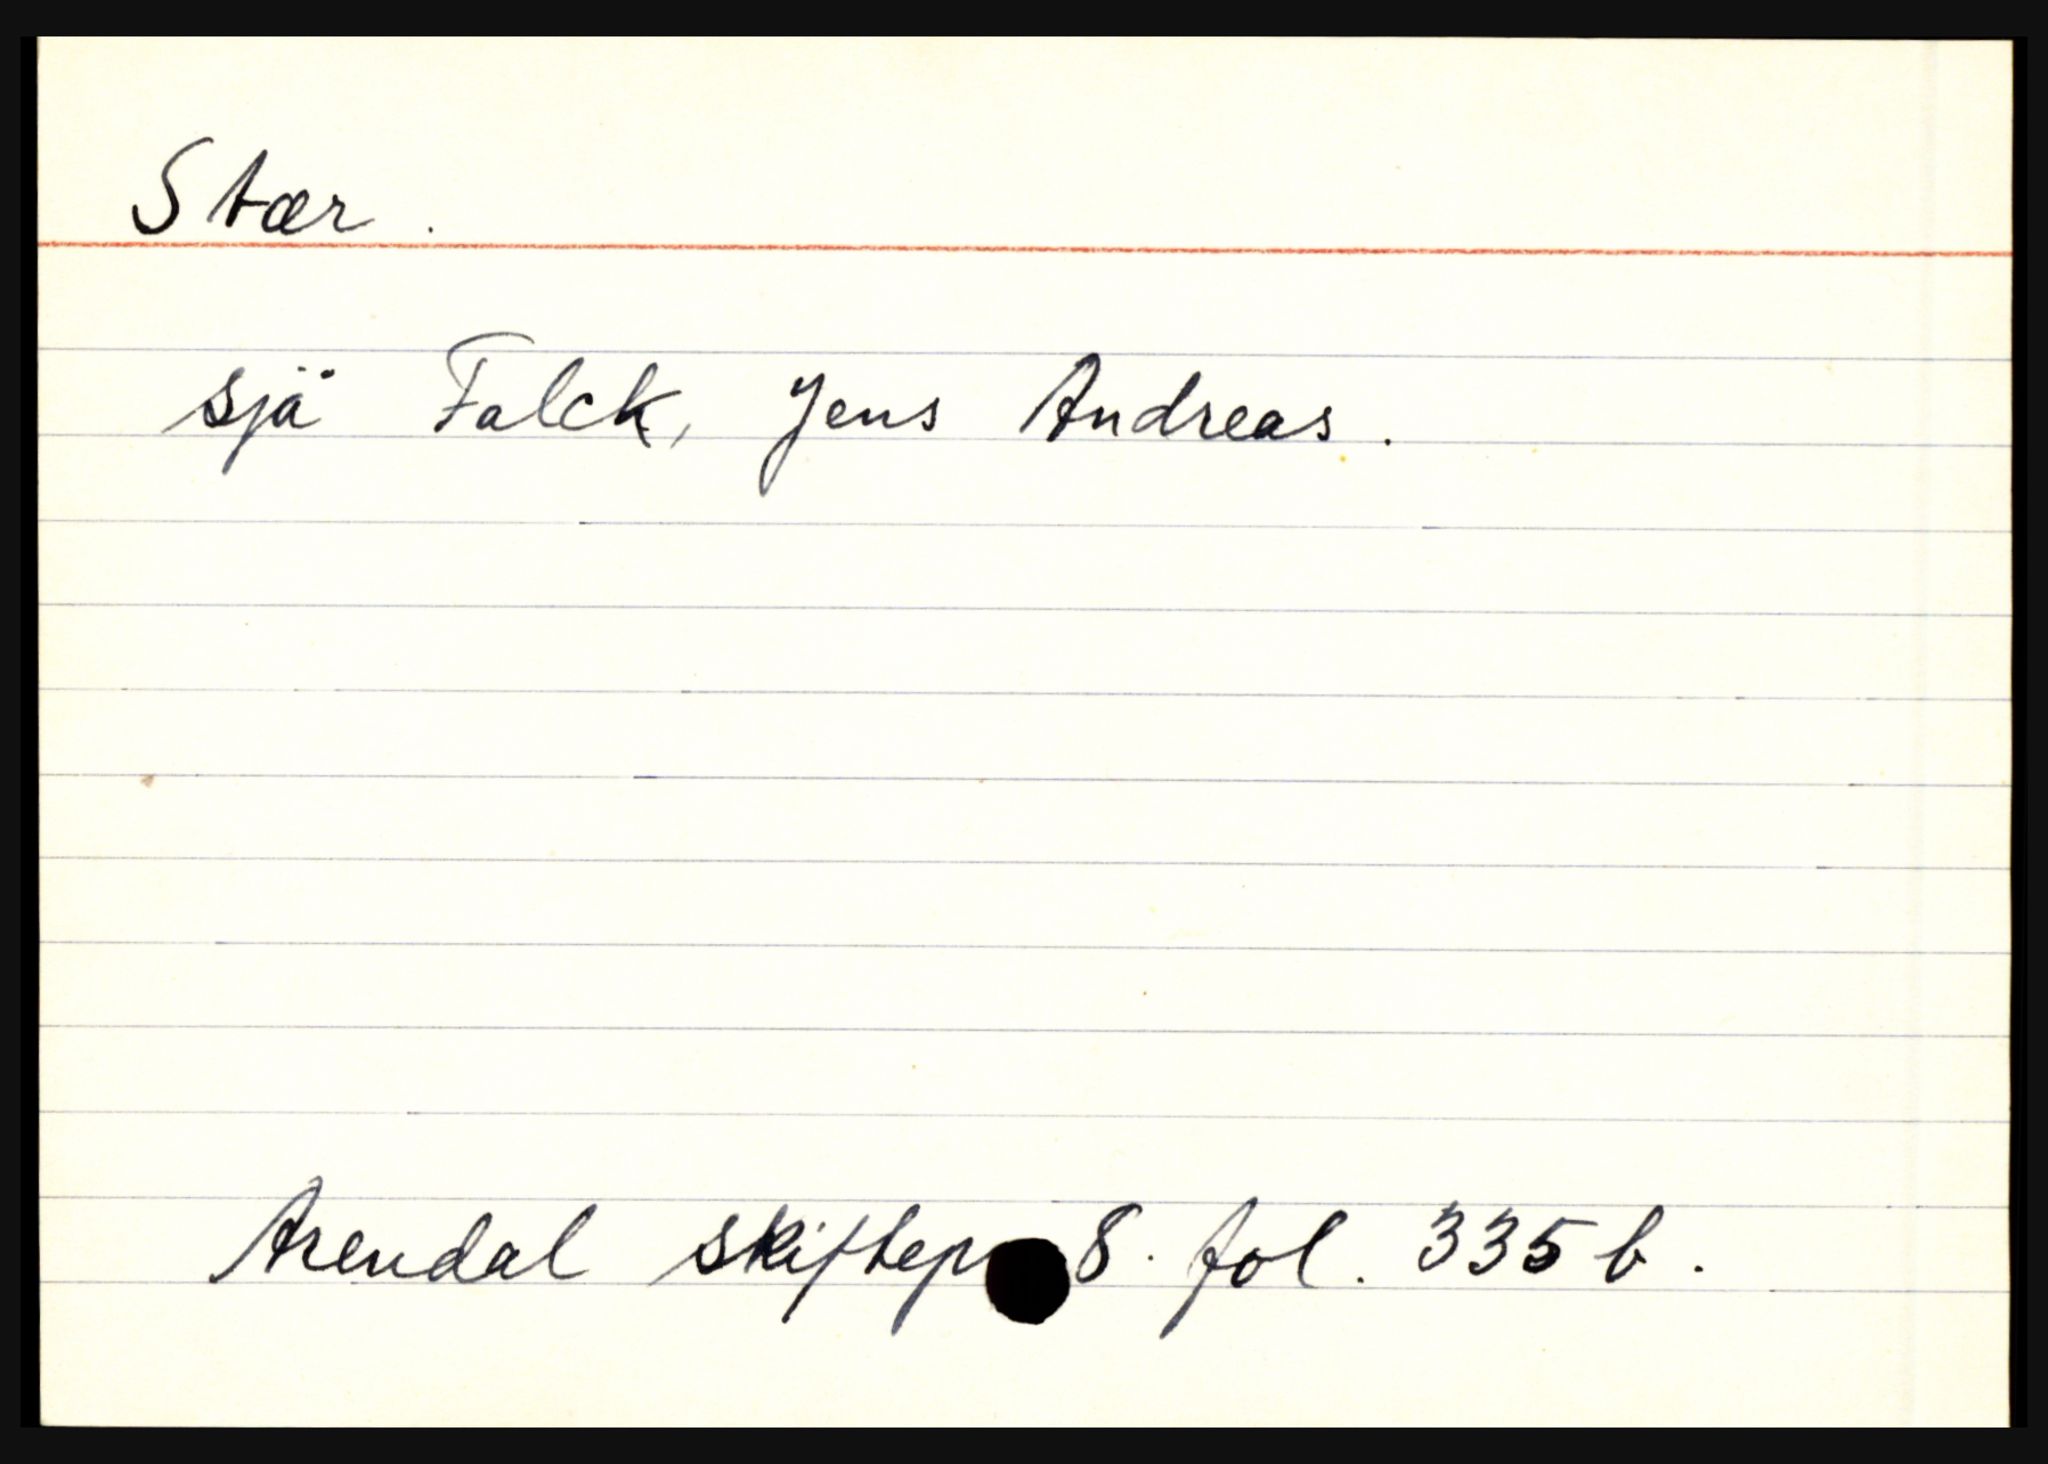 Stær.
sjå Falck, Jens Andreas.
Arendal skiftepr 8. fol. 335 b.